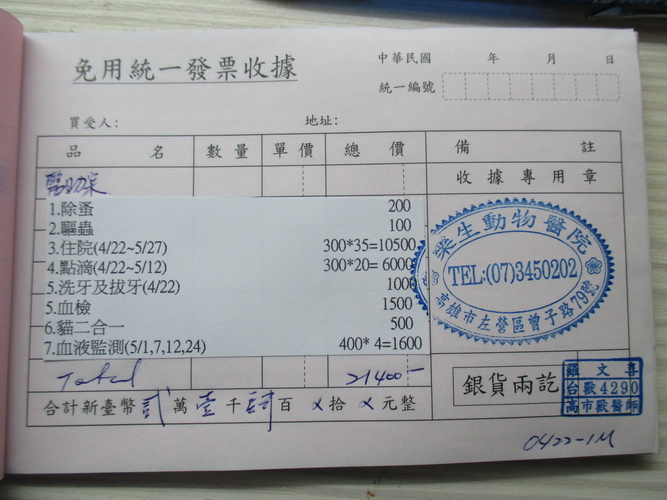 免用統一發票收據
中華民國 年 月 日
統一編號
買受人: 地址:
品 名 數量 單價 總 價 備 註
收據專用章
1.除蚤 200
2.驅蟲 100
3.住院(4/22~5/27) 300*35=10500
4.點滴(4/22~5/12) 300*20= 6000
5.洗牙及拔牙(4/22) 1000
5.血檢 1500
6.貓二合一 500
7.血液監測(5/1,7,12,24) 400* 4=1600
樂生動物醫院
TEL:(07)3450202
高雄市左營區曾子路79號
Total 21400-
銀貨兩訖
文喜
台獸4290
高市獸醫師
合計新臺幣貳萬壹千肆百x拾x元整
0422-1M